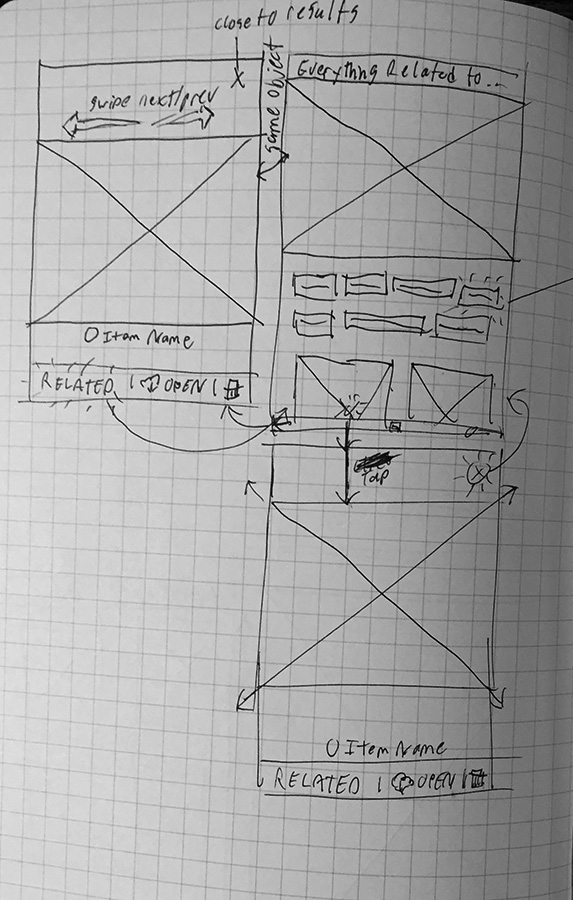 close to results
X
swipe next/prev
same object
Everything Related to...
O Item Name
RELATED | OPEN |
Tap
X
O Item Name
RELATED | OPEN |